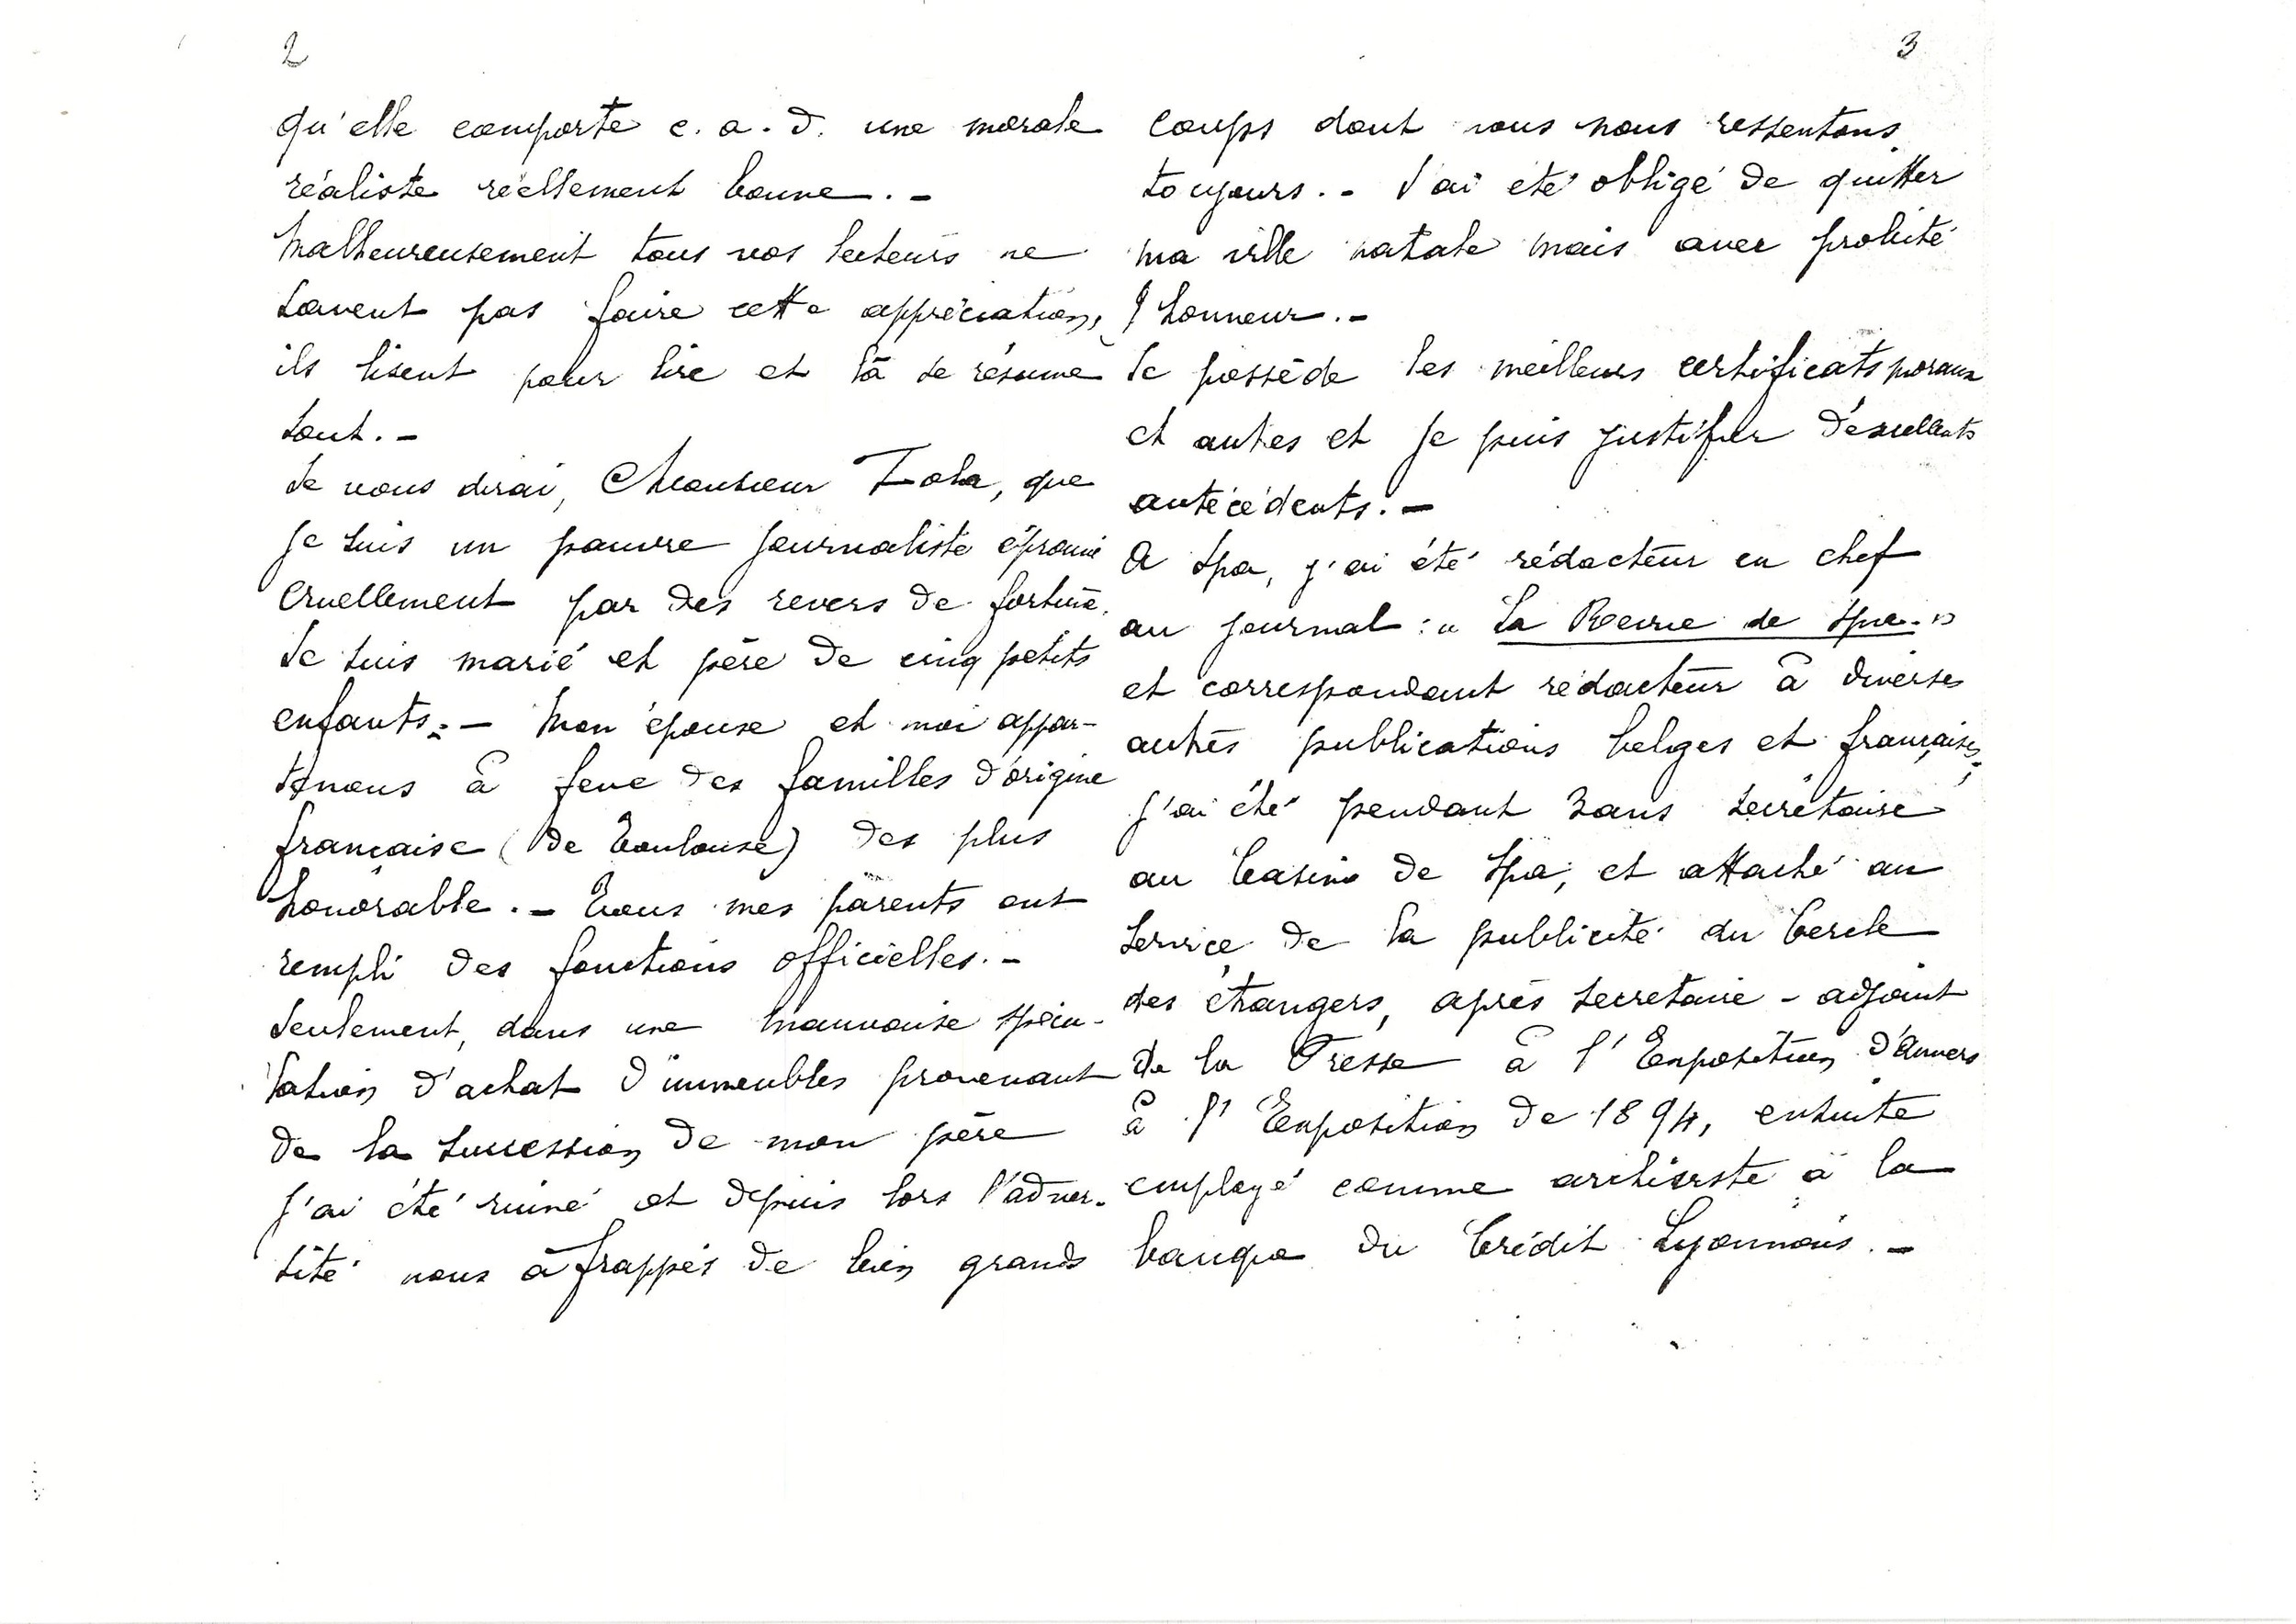 2
qu'elle comporte c. a. d. une morale
réaliste réellement bonne. -
Malheureusement tous vos lecteurs ne
savent pas faire cette appréciation,
ils lisent pour lire et là se résume
tout. -
Je vous dirai, Monsieur Zola, que
je suis un pauvre journaliste éprouvé
cruellement par des revers de fortune.
Je suis marié et père de cinq petits
enfants. - Mon épouse et moi appar-
tenons à des familles d'origine
française (de Toulouse) des plus
honorable. - Tous mes parents ont
rempli des fonctions officielles. -
Seulement, dans une mauvaise spécu-
lation d'achat d'immeubles provenant
de la succession de mon père
j'ai été ruiné et depuis lors l'adver-
sité nous à frappés de bien grands
3
coups dont nous nous ressentons
toujours. - J'ai été obligé de quitter
ma ville natale mais avec probité
& honneur. -
Je possède les meilleurs certificats moraux
et autres et je puis justifier d'excellents
antécédents. -
A Spa, j'ai été rédacteur en chef
au journal : « La Revue de Spa. »
et correspondant rédacteur à diverses
autres publications belges et françaises,
j'ai été pendant 3 ans secrétaire
au Casino de Spa, et attaché au
service de la publicité du Cercle
des étrangers, après secrétaire - adjoint
de la Presse à l'Exposition d'Anvers
à l'Exposition de 1894, ensuite
employé comme archiviste à la
banque du Crédit Lyonnais. -